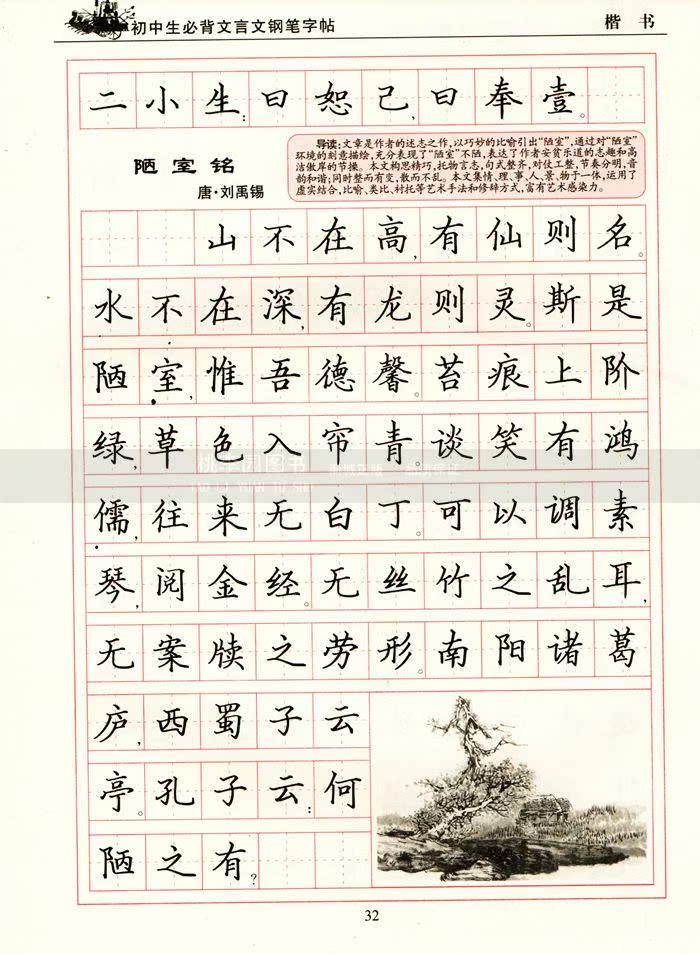 初中生必背文言文钢笔字帖
楷 书
二小生:曰恕己,曰奉壹。
陋室铭
唐·刘禹锡
导读:文章是作者的述志之作,以巧妙的比喻引出“陋室”,通过对“陋室”
环境的刻意描绘,充分表现了“陋室”不陋,表达了作者安贫乐道的志趣和高
洁傲岸的节操。本文构思精巧,托物言志,句式整齐,对仗工整,节奏分明,音
韵和谐;同时整而有变,散而不乱。本文集情、理、事、人、景、物于一体,运用了
虚实结合,比喻、类比、衬托等艺术手法和修辞方式,富有艺术感染力。
山不在高,有仙则名。
水不在深,有龙则灵。斯是
陋室,惟吾德馨。苔痕上阶
绿,草色入帘青。谈笑有鸿
儒,往来无白丁。可以调素
琴,阅金经。无丝竹之乱耳,
无案牍之劳形。南阳诸葛
庐,西蜀子云
亭。孔子云:何
陋之有?
32